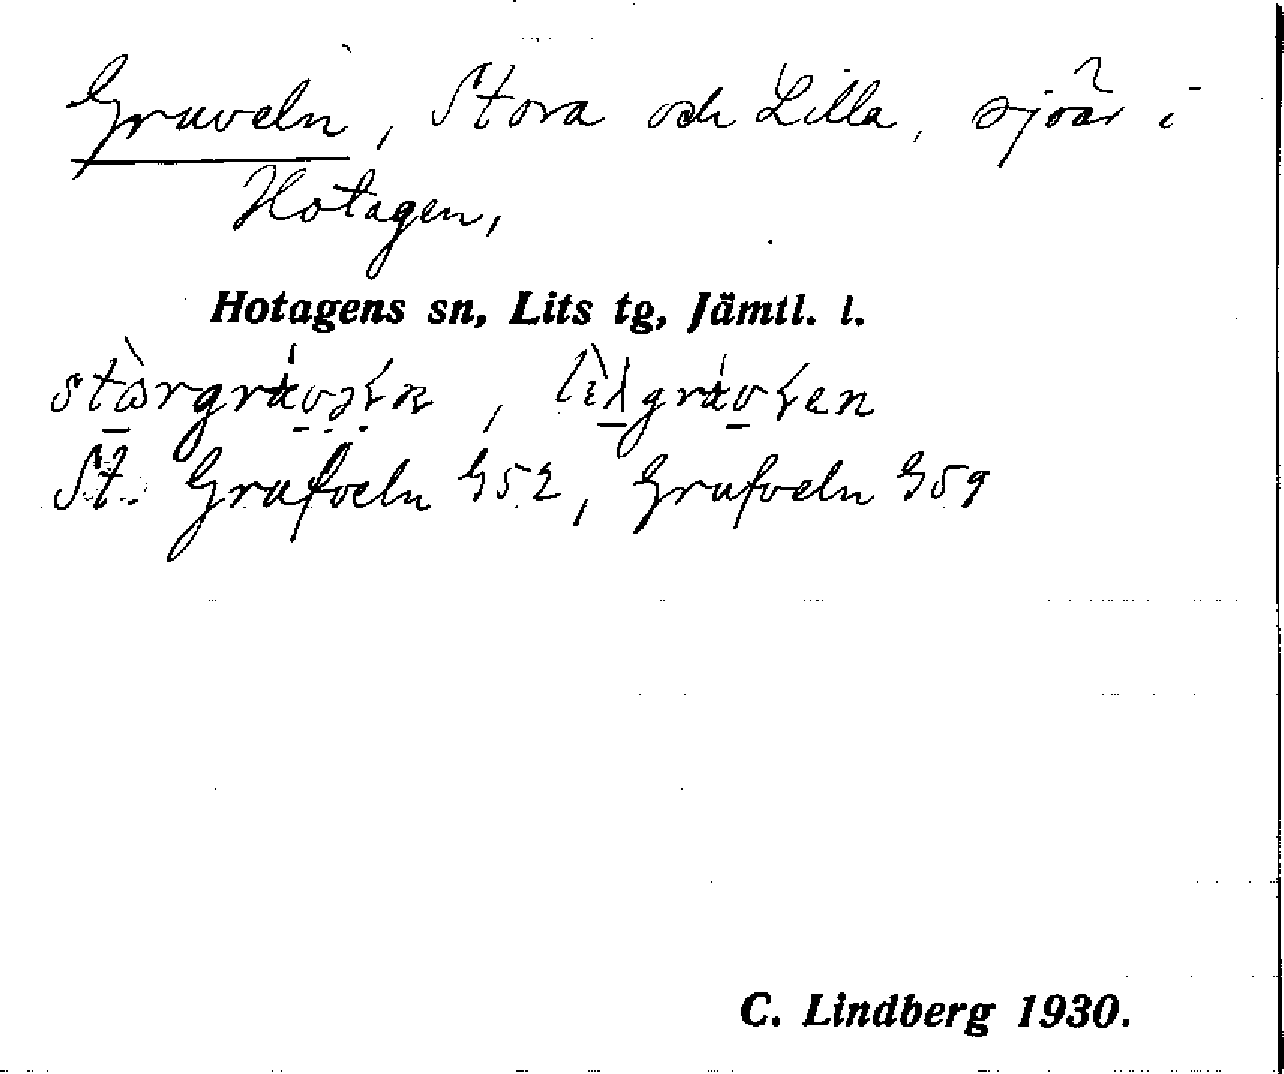 Gruveln, Stora och Lilla, sjöar i
Hotagen,
Hotagens sn, Lits tg, Jämtl. l.
St. Grufveln G52, Grufveln G59
C. Lindberg 1930.